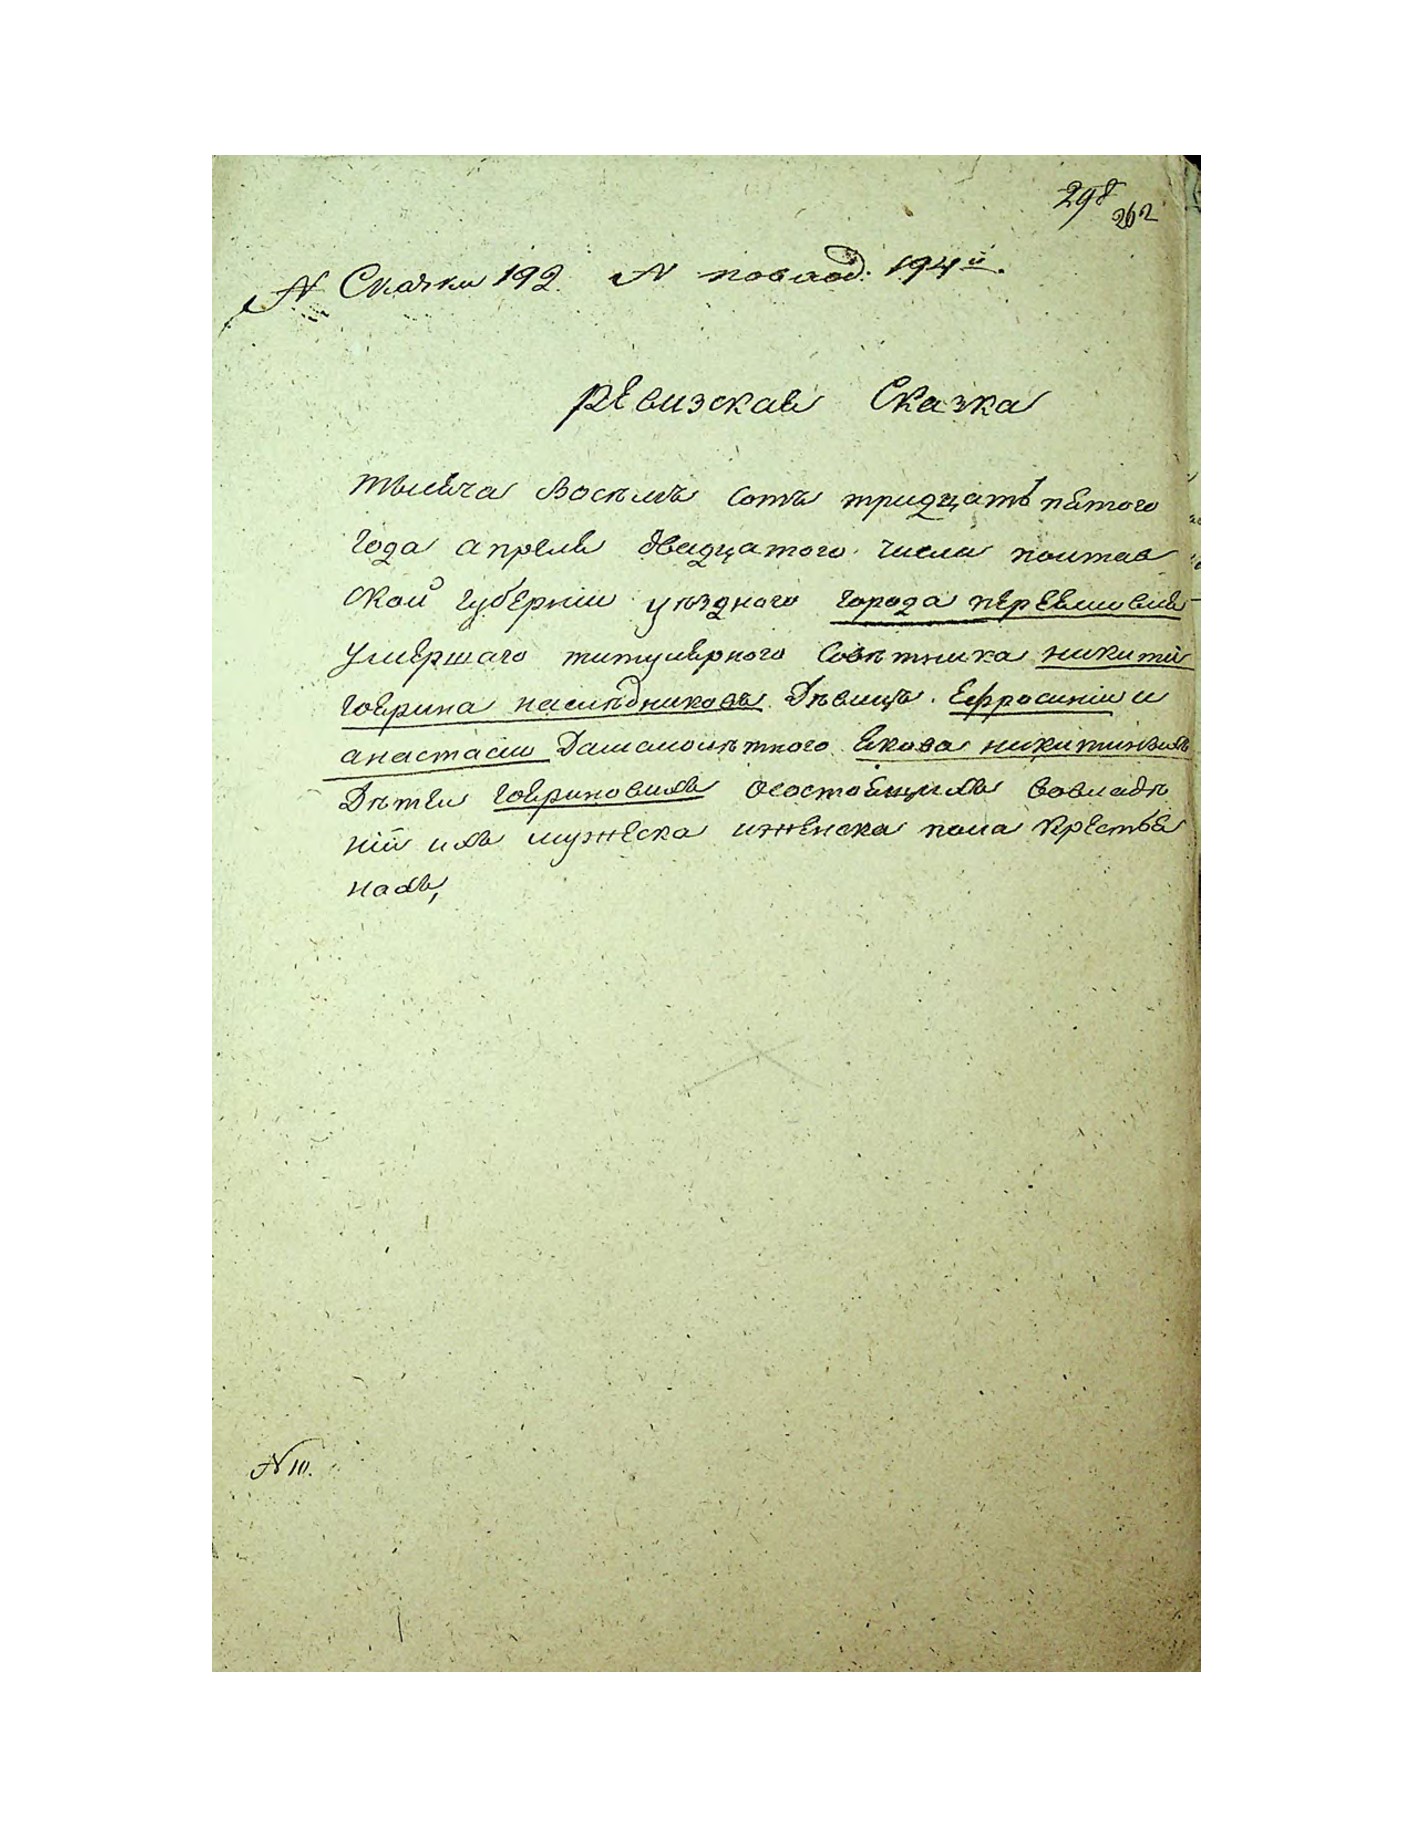 298
262
N Сказки 192. N повод: 194й.
Ревизская Сказка
тысяча восемь сотъ тридцать пятого
года апреля двадцатого числа полтав
ской губернии уѣзднаго города переяславля
умершаго титулярного Совѣтника никиты
гоярина наслѣдниковъ дѣвицъ. Ефросиніи и
анастасіи Дамалолѣтного якова никитинихъ
Дѣтей гояриновихъ осостоящихъ вовладѣ
ніи ихъ мужеска иженска пола крестья
нахъ,
N 10.